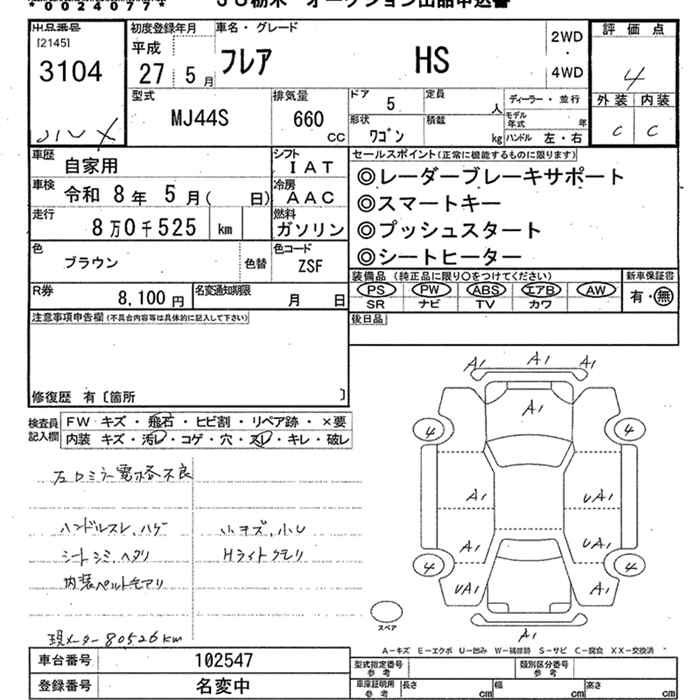 *00240777*
JU栃木 オークション出品申込書
出品番号
[2145]
3104
初度登録年月
平成
27 5月
車名・グレード
フレア HS
2WD
・
4WD
評価点
4
外装 内装
C C
型式
MJ44S
排気量
660
CC
ドア 5
定員 人
形状
ワゴン
積載 kg
ディーラー・並行
モデル年式 年
ハンドル 左・右
車歴
自家用
シフト
IAT
車検
令和 8年 5月( 日)
冷房
AAC
走行
8万0千525 km
燃料
ガソリン
色
ブラウン
色替
色コード
ZSF
R券
8,100円
名変通知期限
月 日
セールスポイント(正常に機能するものに限ります)
◎レーダーブレーキサポート
◎スマートキー
◎プッシュスタート
◎シートヒーター
装備品 (純正品に限り○をつけてください)
新車保証書
PS PW ABS エアB AW
有・無
SR ナビ TV カワ
後日品
注意事項申告欄(不具合内容等は具体的に記入して下さい)
修復歴 有〔箇所 〕
検査員
記入欄
FW キズ・飛石・ヒビ割・リペア跡・×要
内装 キズ・汚レ・コゲ・穴・スレ・キレ・破レ
左ロミラー電格不良
ハンドルスレ、ハゲ
小キズ、小U
シートシミ、ヘタリ
Hライトクモリ
内装ペルトモアリ
現メーター80526km
A1 A1 A1
A1
4 4
A1 UA1
A1 UA1
4 4
UA1 A1
A1
スペア
A-キズ E-エクボ U-凹み W-補修跡 S-サビ C-腐食 XX-交換済
車台番号
102547
登録番号
名変中
型式指定番号
参考
類別区分番号
参考
車庫証明用
参考
長さ cm
幅 cm
高さ cm